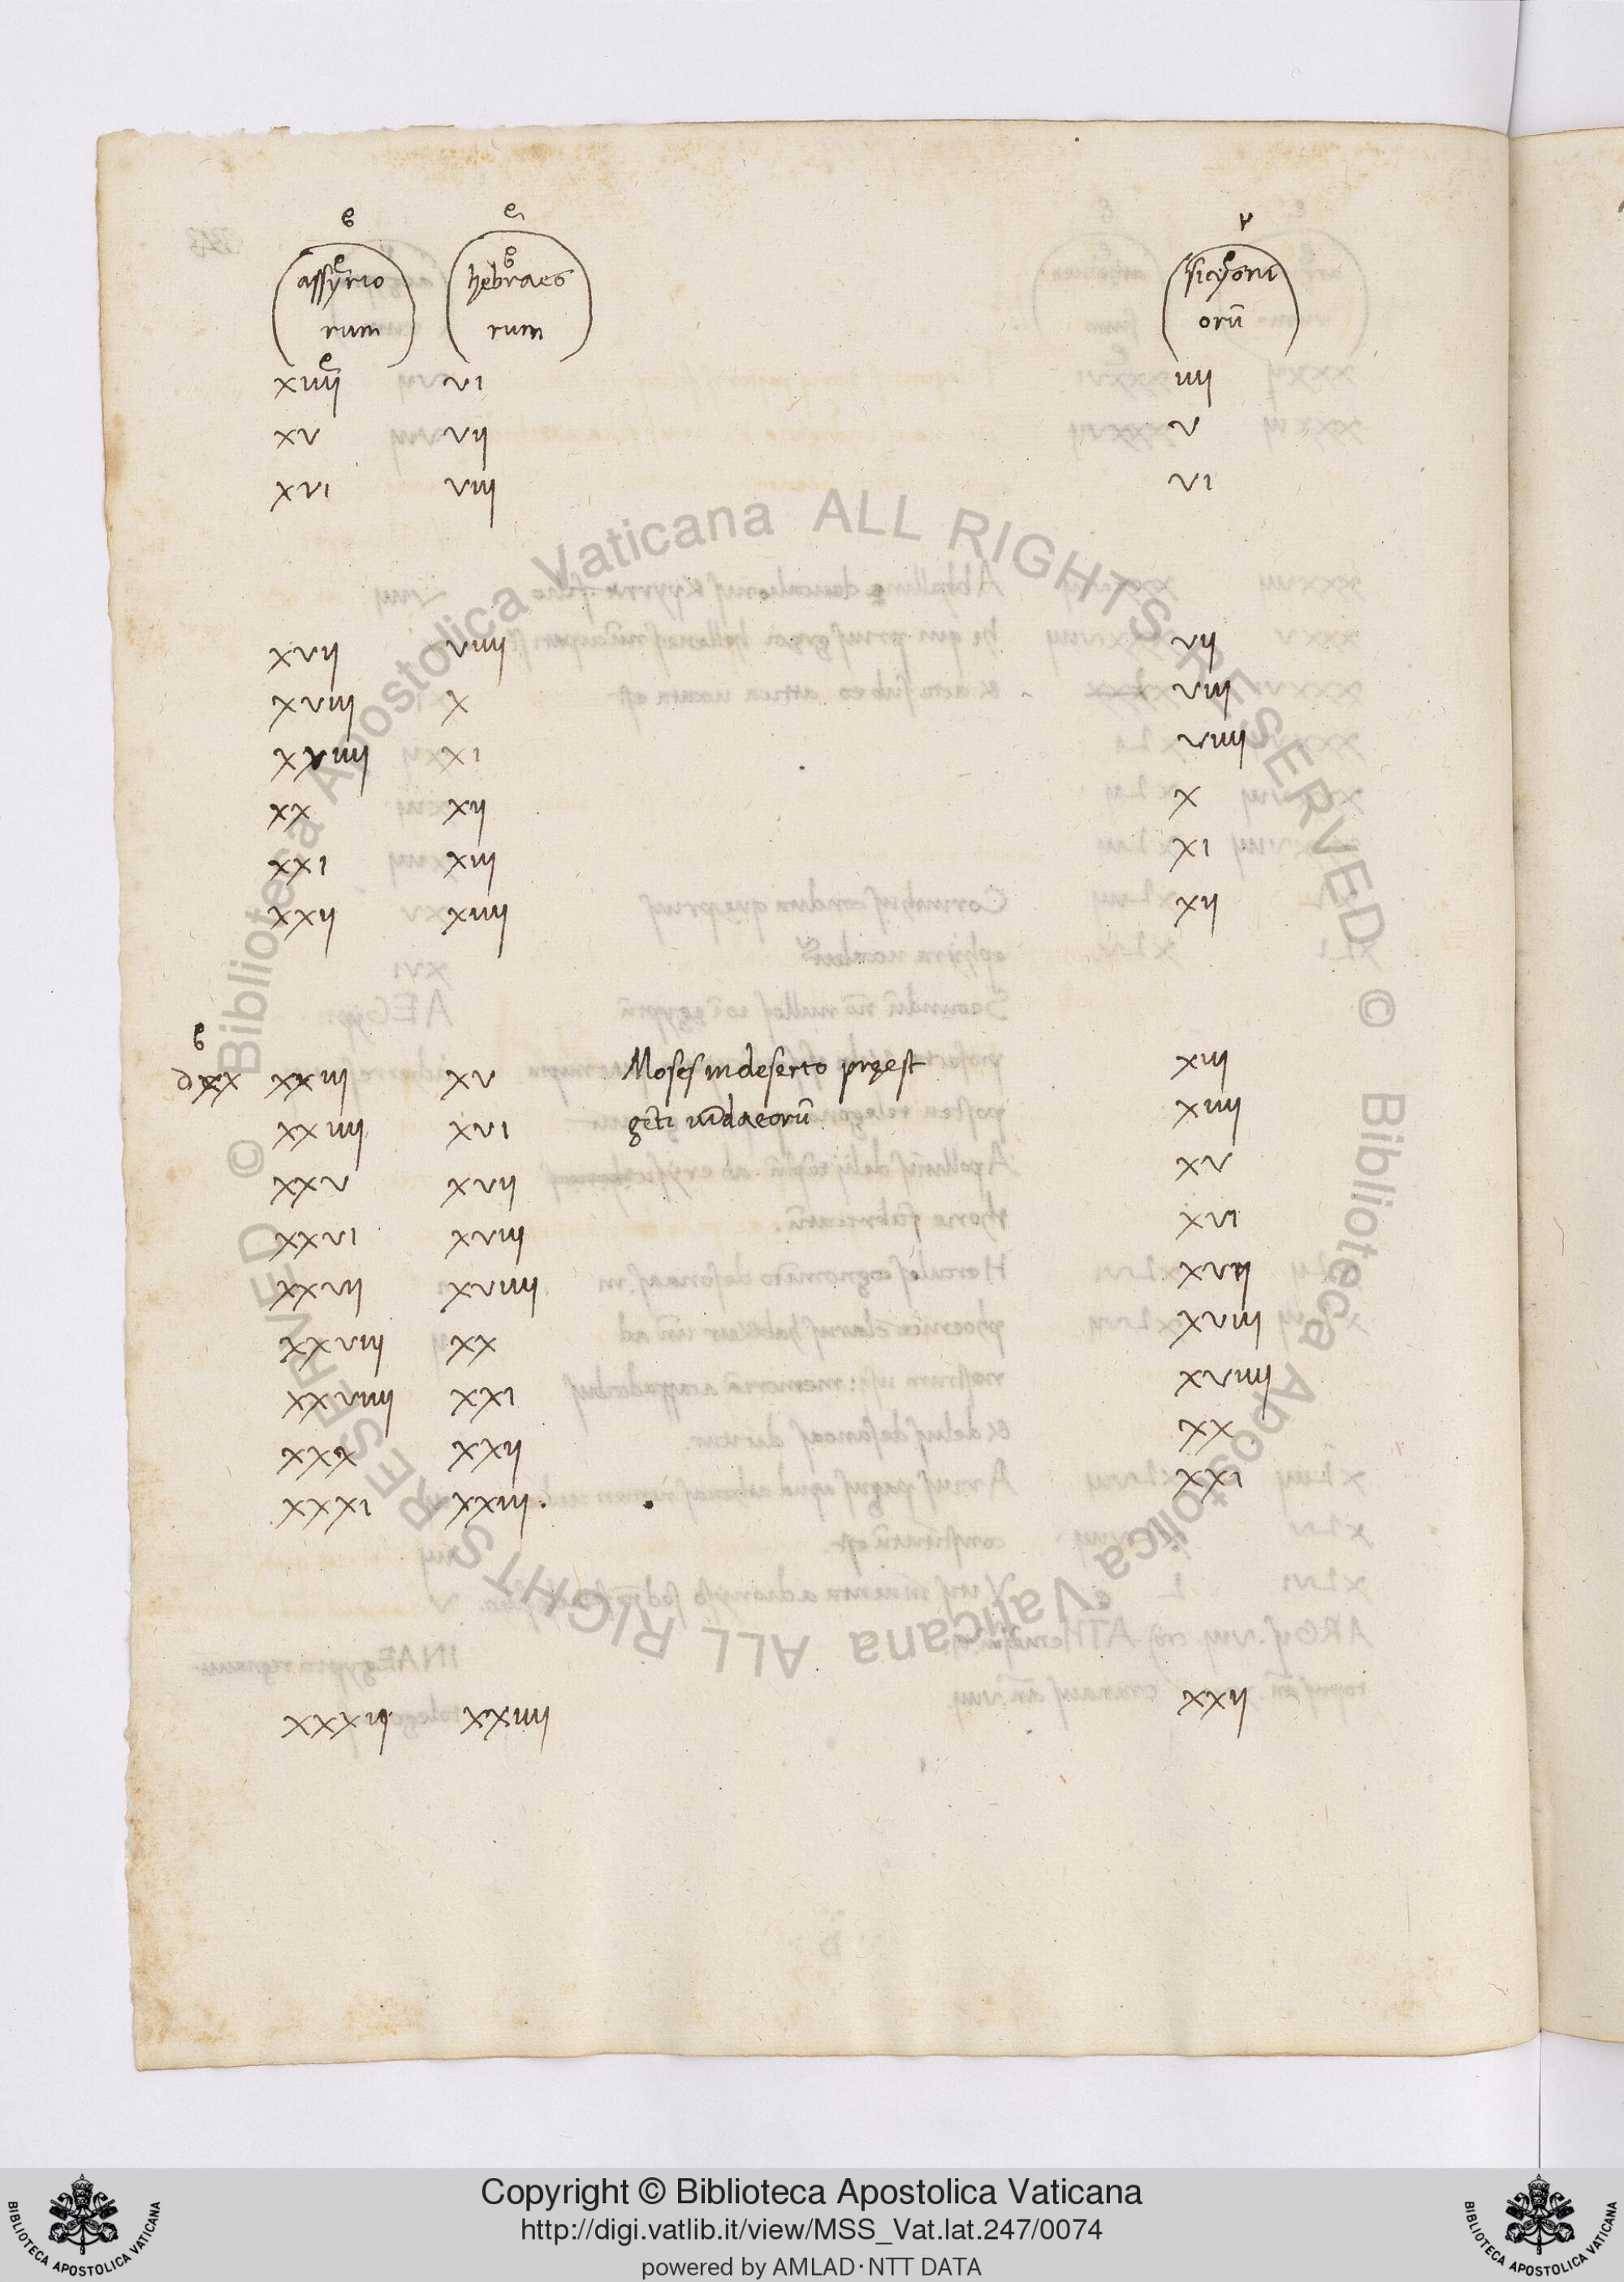 assyrio hebraeo sicyoni
rum rum orū
xiiij vi iiij
xv vij v
xvi viij vi
xvij viiij vij
xviij x viij
xviiij xi viiij
xx xij x
xxi xiij xi
xxij xiiij xij
dxx xxiij xv Moses in deserto pręest xiij
xxiiij xvi gēti iudaeorū xiiij
xxv xvij xv
xxvi xviij xvi
xxvij xviiij xvij
xxviij xx xviij
xxviiij xxi xviiij
xxx xxij xx
xxxi xxiij. xxi
xxxij xxiiij xxij
© Biblioteca Apostolica Vaticana ALL RIGHTS RESERVED © Biblioteca Apostolica Vaticana ALL RIGHTS RESERVED
Copyright © Biblioteca Apostolica Vaticana
http://digi.vatlib.it/view/MSS_Vat.lat.247/0074
powered by AMLAD·NTT DATA
BIBLIOTECA APOSTOLICA VATICANA
BIBLIOTECA APOSTOLICA VATICANA